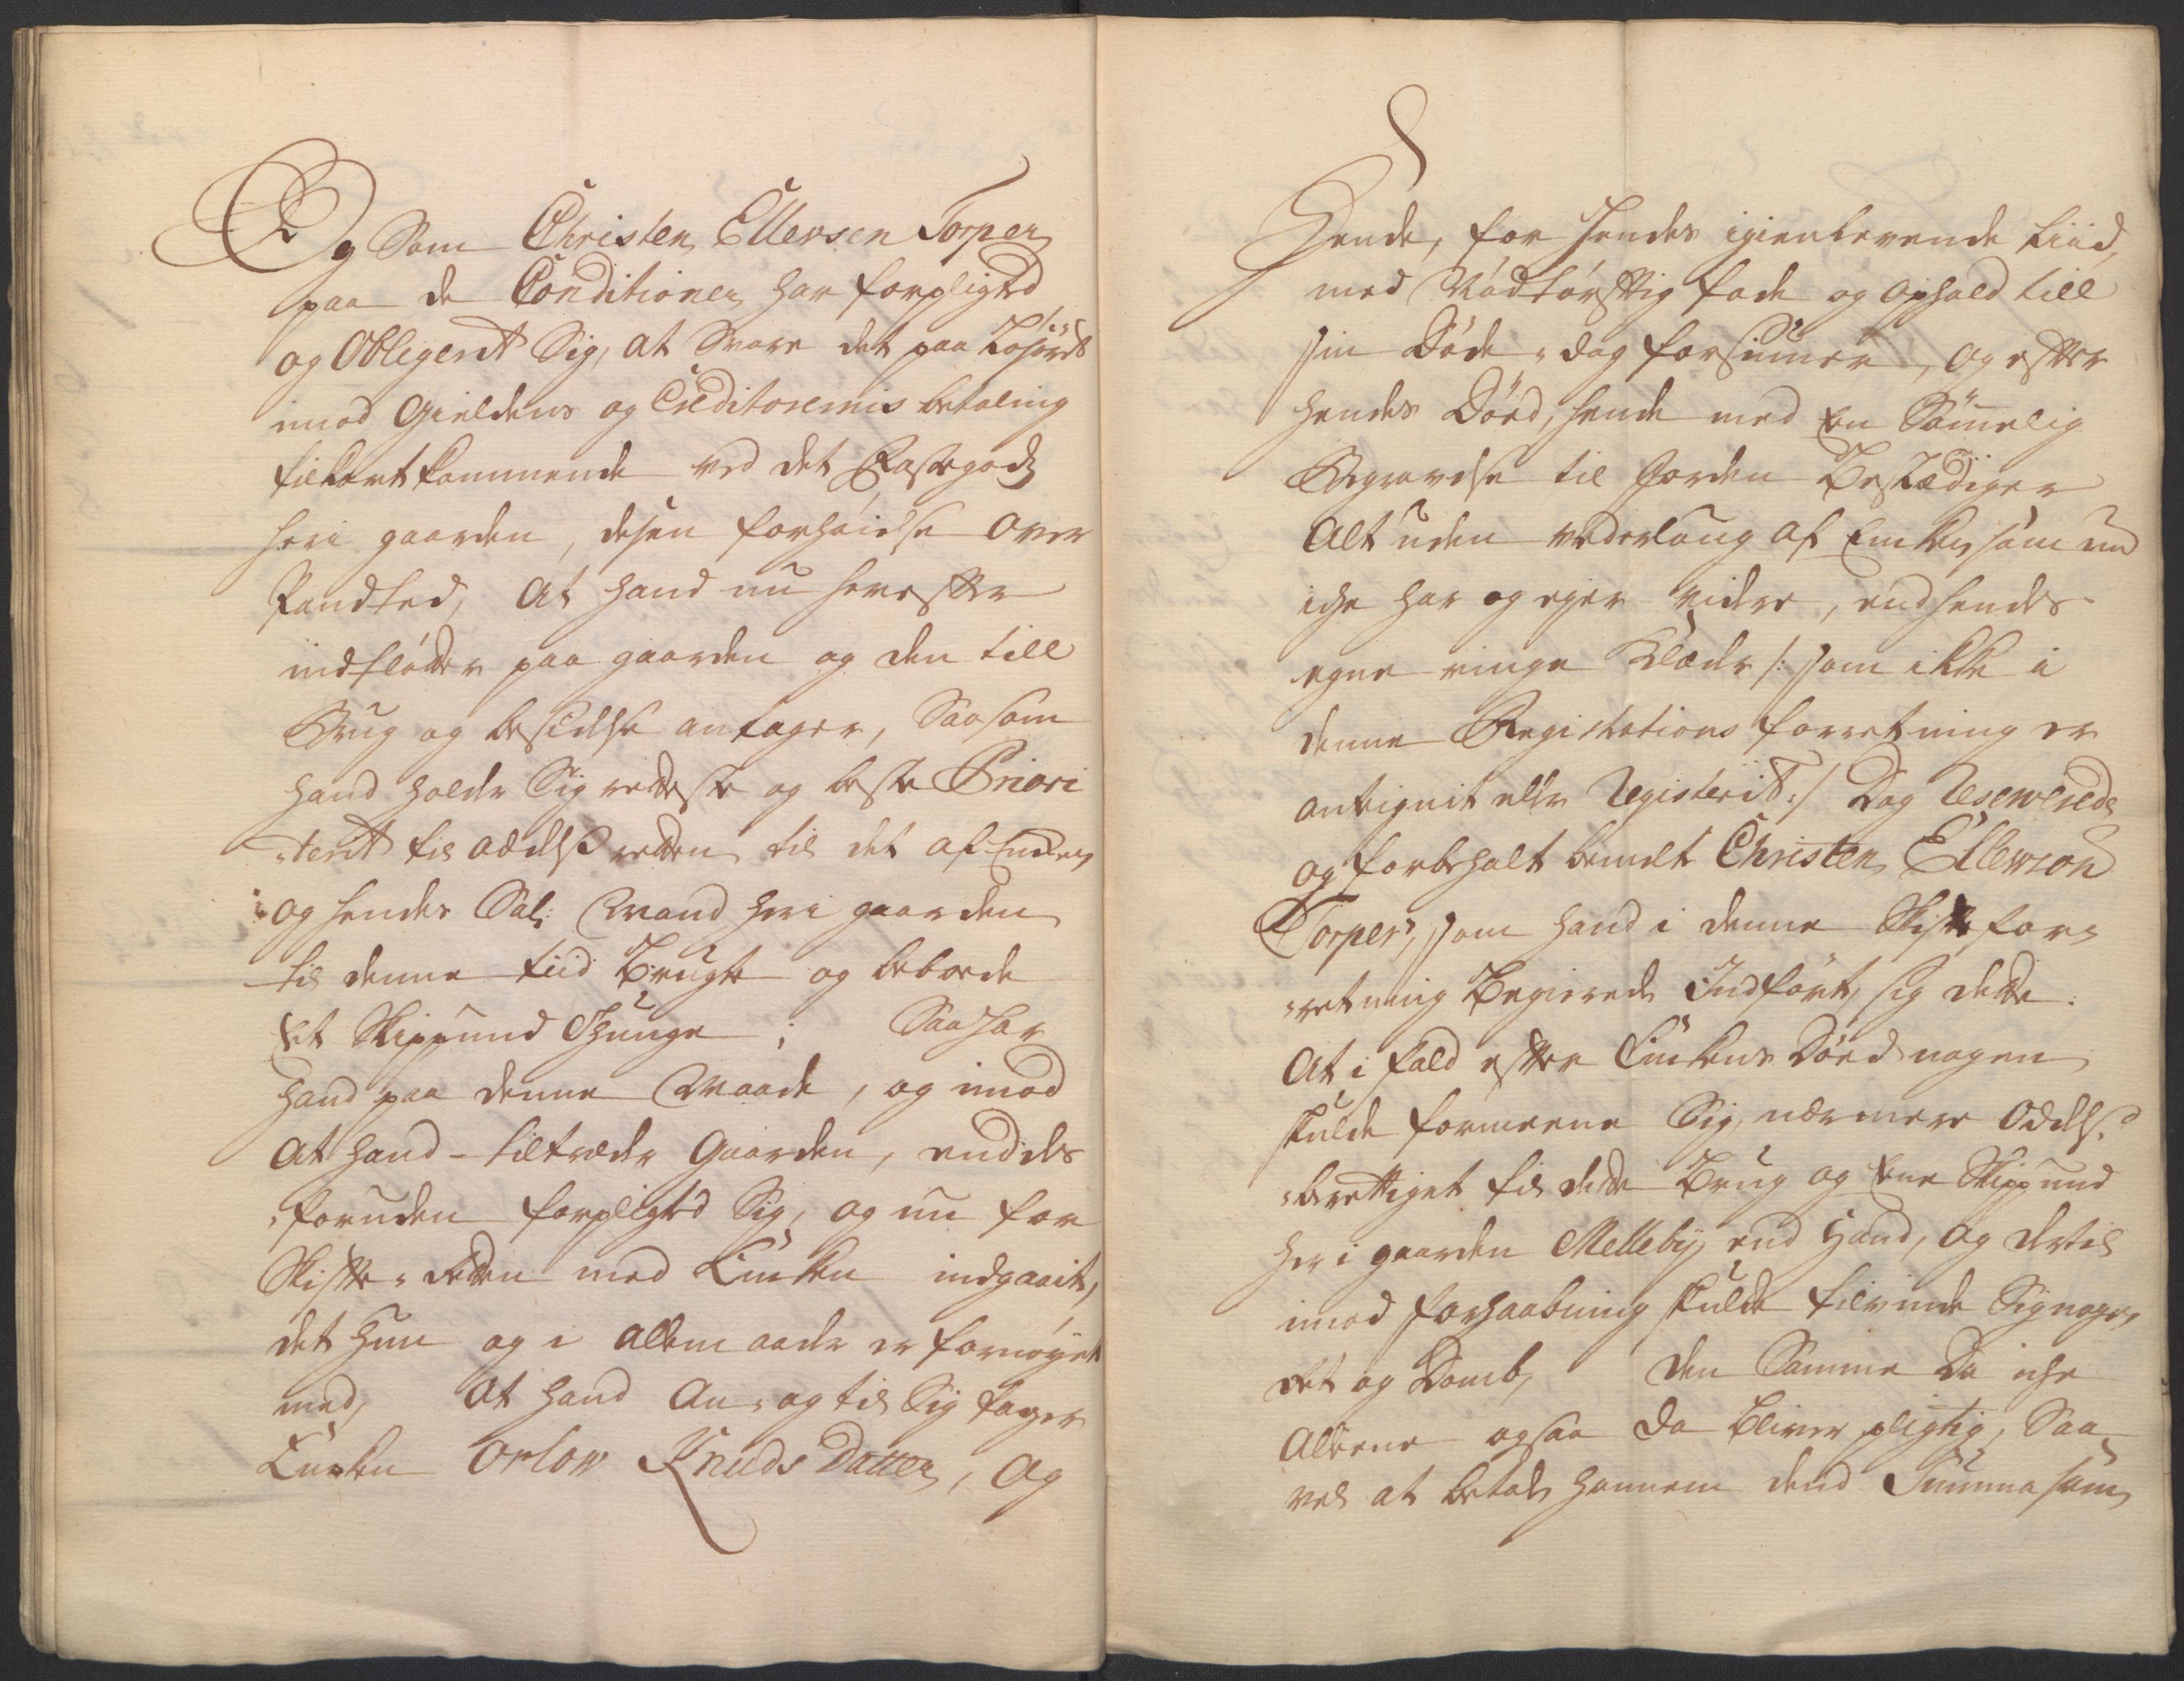 Og Som Christen Ellersen Torper
paa de Conditioner har forpligted
og Obligerit Sig, at Svare det paa
imod Gieldens og Creditorernis betaling
tilkort kommende ved det
her i gaarden, desen forhøielse over
at hand nu herefter
indfløtter paa gaarden og den till
Brug og besidelse antager, Saasom
hand holder Sig retteste og beste Priori
-terit til odelß retten til det af Enchen
og hendes Sal: Mand her i gaarden
til denne tiid Brugte og beboede
Et Skippund Thunge; Saa har
hand paa denne Maade, og imod
At hand tiltræder Gaarden, end des
foruden forpligted Sig, og nu for
Skifte-Retten med Enchen indgaait,
det hun og i alle maader er fornøyet
med, At hand An- og til Sig tager
Enchen Orlow Knuds Datter, Og
Hende, for hendes igienlevende tiid,
med Nødtørfftig føde og ophold till
sin Døde-dag forsiuner, og efter
hendes Død, hende med En Sømmelig
Begravelse til Jorden Bestædiger
Alt uden vederlaug af Enchen som nu
iche har og ejer videre, end hendes
egne ringe Klæder /: som ikke i
denne Registrations forretning er
antegnit eller Registerit :/ Dog Reserverede
og forbeholt bemelte Christen Ellerson
Torper, som hand i denne Skifte for-
-retning Begierede Indført, sig dette:
At i fald efter Enchens Død nogen
skulde formeene Sig, nærmere Odels-
-berettiget til dette Brug og Ene Skippund
her i gaarden Melleby, end Hand, og dertil
imod forhaabning skulde tilvinde Sig nogen
Ret og Domb, den Samme da iche
Alleene ogsaa da bliver pligtig, Saa
vel at betale hannem dend Summa som